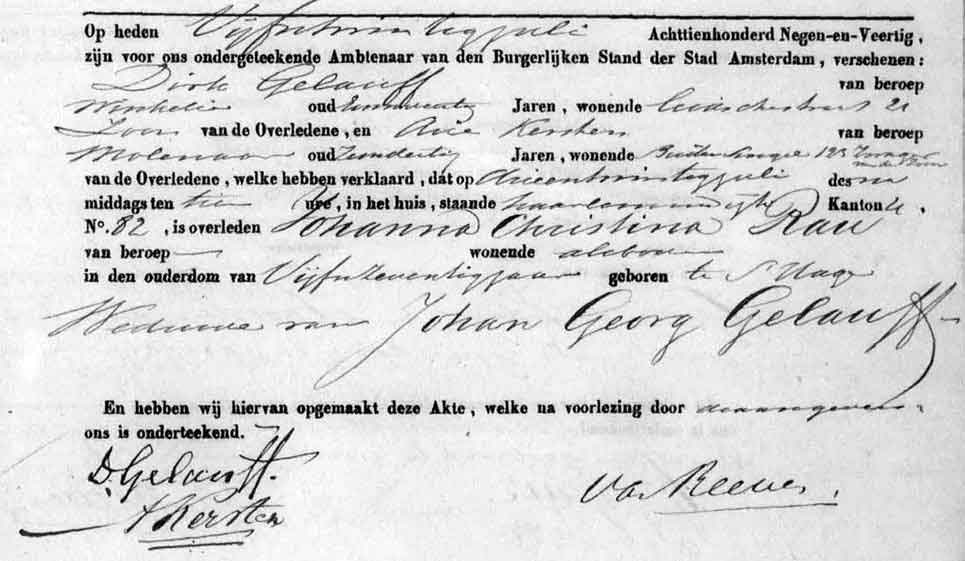 Op heden Vijfentwintig juli Achttienhonderd Negen-en-Veertig,
zijn voor ons ondergeteekende Ambtenaar van den Burgerlijken Stand der Stad Amsterdam, verschenen:
Dirk Gelauff van beroep
Winkelier oud Jaren, wonende 21
Zoon van de Overledene, en Arie Kersten van beroep
Molenaar oud Jaren, wonende 123
van de Overledene, welke hebben verklaard, dat op drieentwintig juli des
middags ten tien ure, in het huis, staande Haarlemmerdijk Kanton
No. 82, is overleden Johanna Christina Rau
van beroep — wonende aldaar
in den ouderdom van Vijfenzeventig jaar geboren te s Hage
Weduwe van Johan Georg Gelauff
En hebben wij hiervan opgemaakt deze Akte, welke na voorlezing door de aangevers
ons is onderteekend.
D. Gelauff.
A Kersten